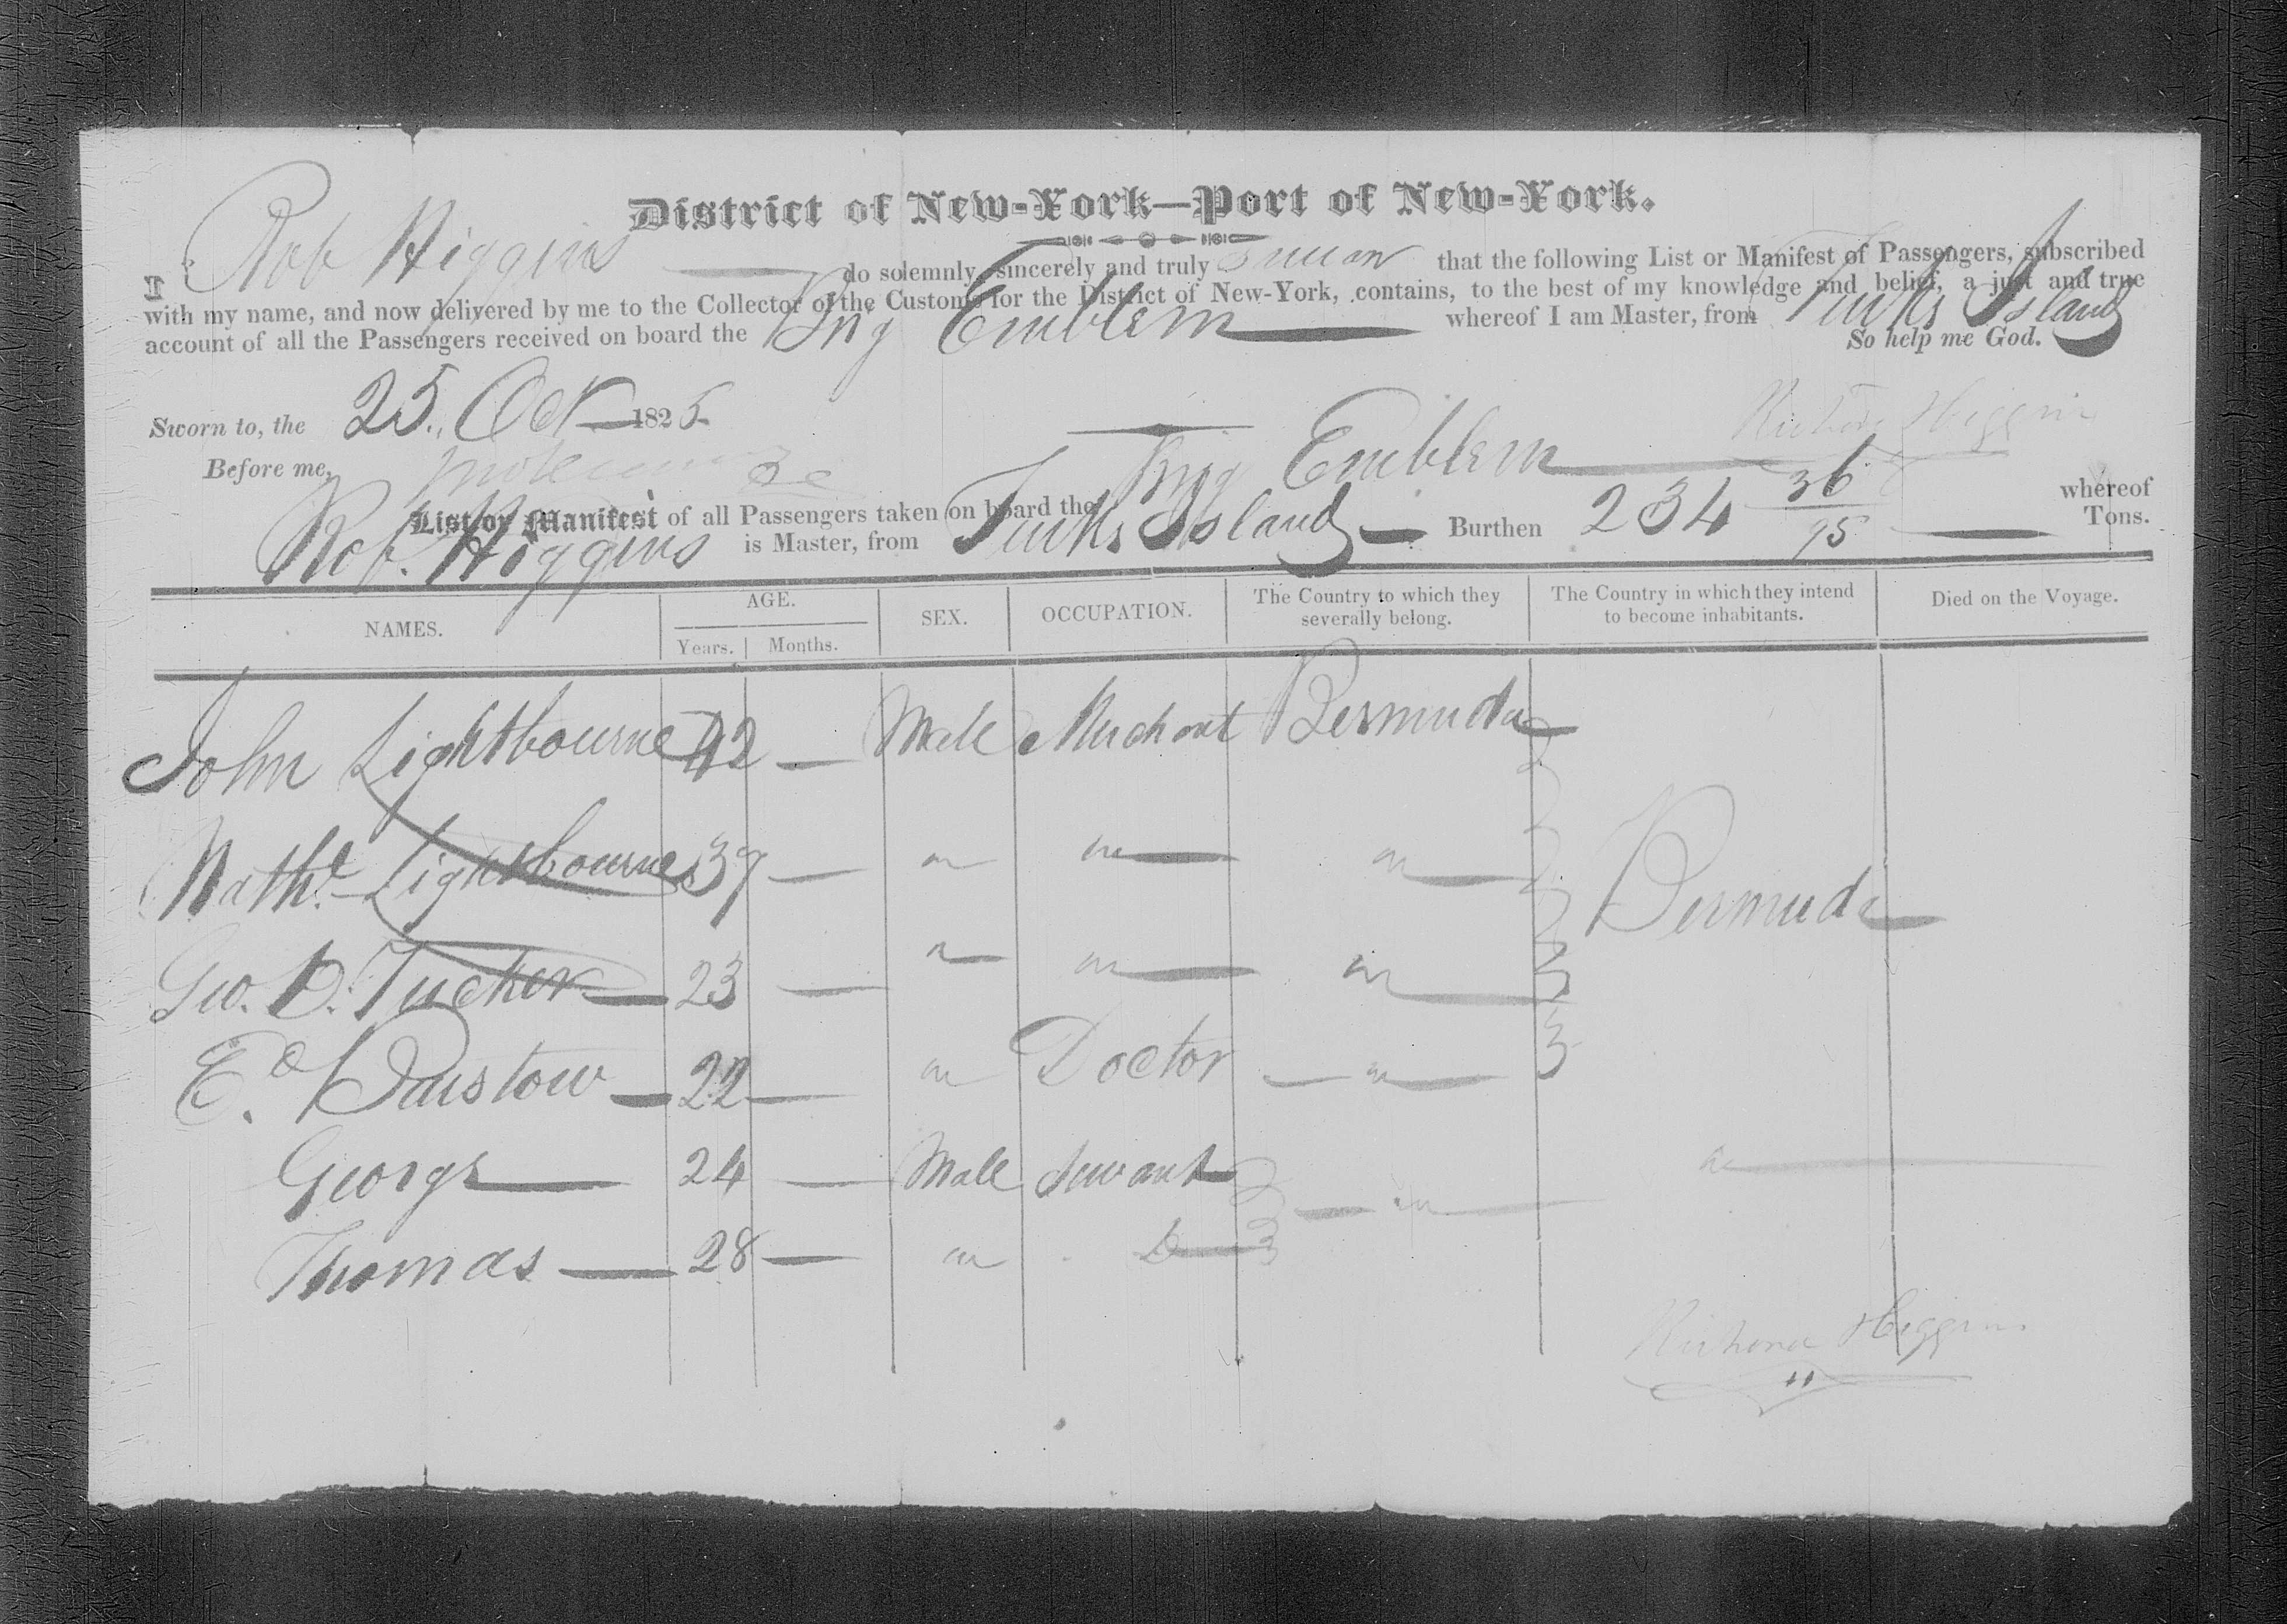 District of New-York—Port of New-York.
I Rob Higgins do solemnly, sincerely and truly swear that the following List or Manifest of Passengers, subscribed
with my name, and now delivered by me to the Collector of the Customs for the District of New-York, contains, to the best of my knowledge and belief, a just and true
account of all the Passengers received on board the Brig Emblem whereof I am Master, from Turks Island
So help me God.
Sworn to, the 25 Oct 1825
Higgins
Before me,
List or Manifest of all Passengers taken on board the Brig Emblem whereof
Rob. Higgins is Master, from Turks Island Burthen 234 36/95 Tons.
NAMES. AGE. Years. Months. SEX. OCCUPATION. The Country to which they severally belong. The Country in which they intend to become inhabitants. Died on the Voyage.
John Lightbourne 42 — Male Merchant Bermuda
Nathl. Lightbourne 39 — " " "
Bermuda
Geo. D. Tucker 23 — " " "
Ed. 22 — " Doctor — "
George 24 — Male Servant — " "
Thomas 28 — " Do
Higgins